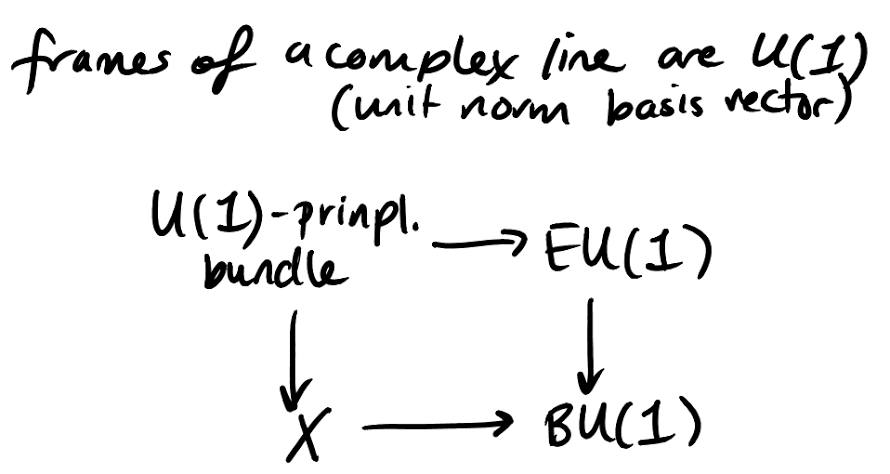 frames of a complex line are U(1)
(unit norm basis vector)
U(1)-prinpl.
bundle
EU(1)
X
BU(1)